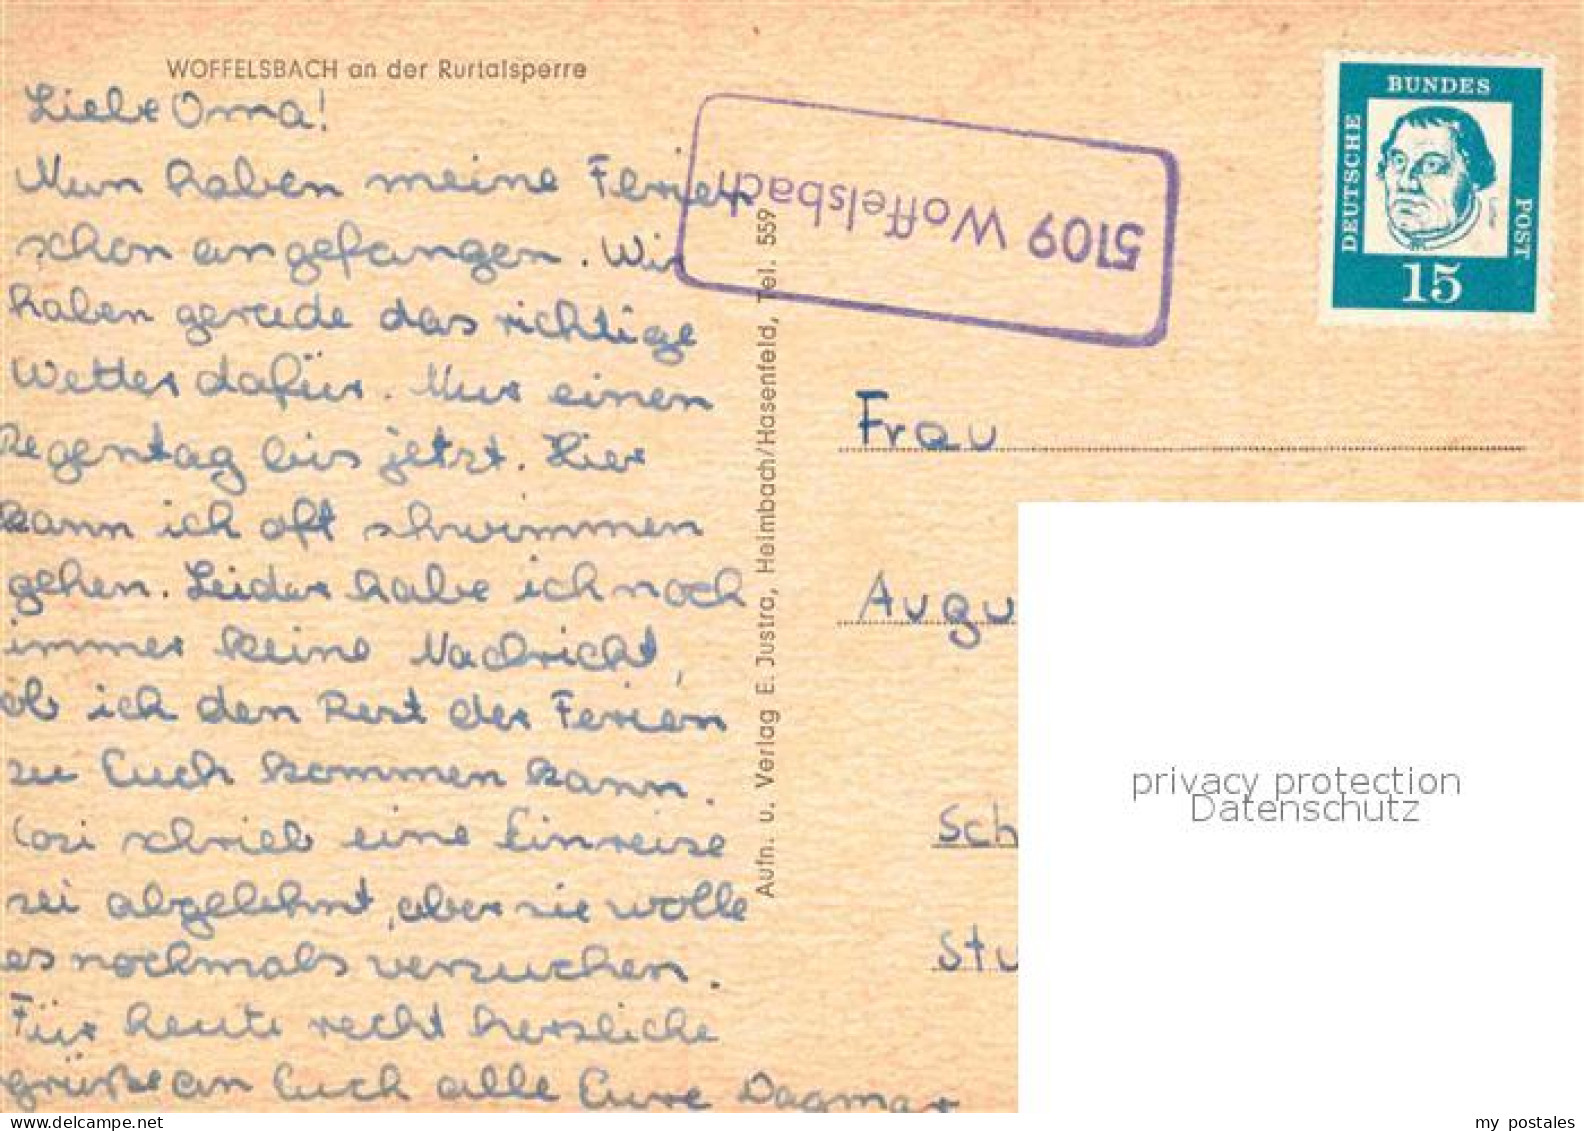 WOFFELSBACH an der Rurtalsperre
Liebe Oma!
Nun haben meine Ferien
schon angefangen. Wir
haben gerade das richtige
Wetter dafür. Nur einen
Regentag bis jetzt. Hier
kann ich oft schwimmen
gehen. Leider habe ich noch
immer keine Nachricht,
ob ich den Rest der Ferien
zu Euch kommen kann.
schrieb eine Einreise
sei abgelehnt, aber sie wolle
es nochmals versuchen.
Für heute recht herzliche
Grüße an Euch alle Eure Dagmar
Aufn. u. Verlag E. Justra, Heimbach/Hasenfeld, Tel. 559
5109 Woffelsbach
DEUTSCHE
BUNDES
POST
Luther
15
Frau
Augu
Sch
Stu
privacy protection
Datenschutz
delcampe.net
my postales